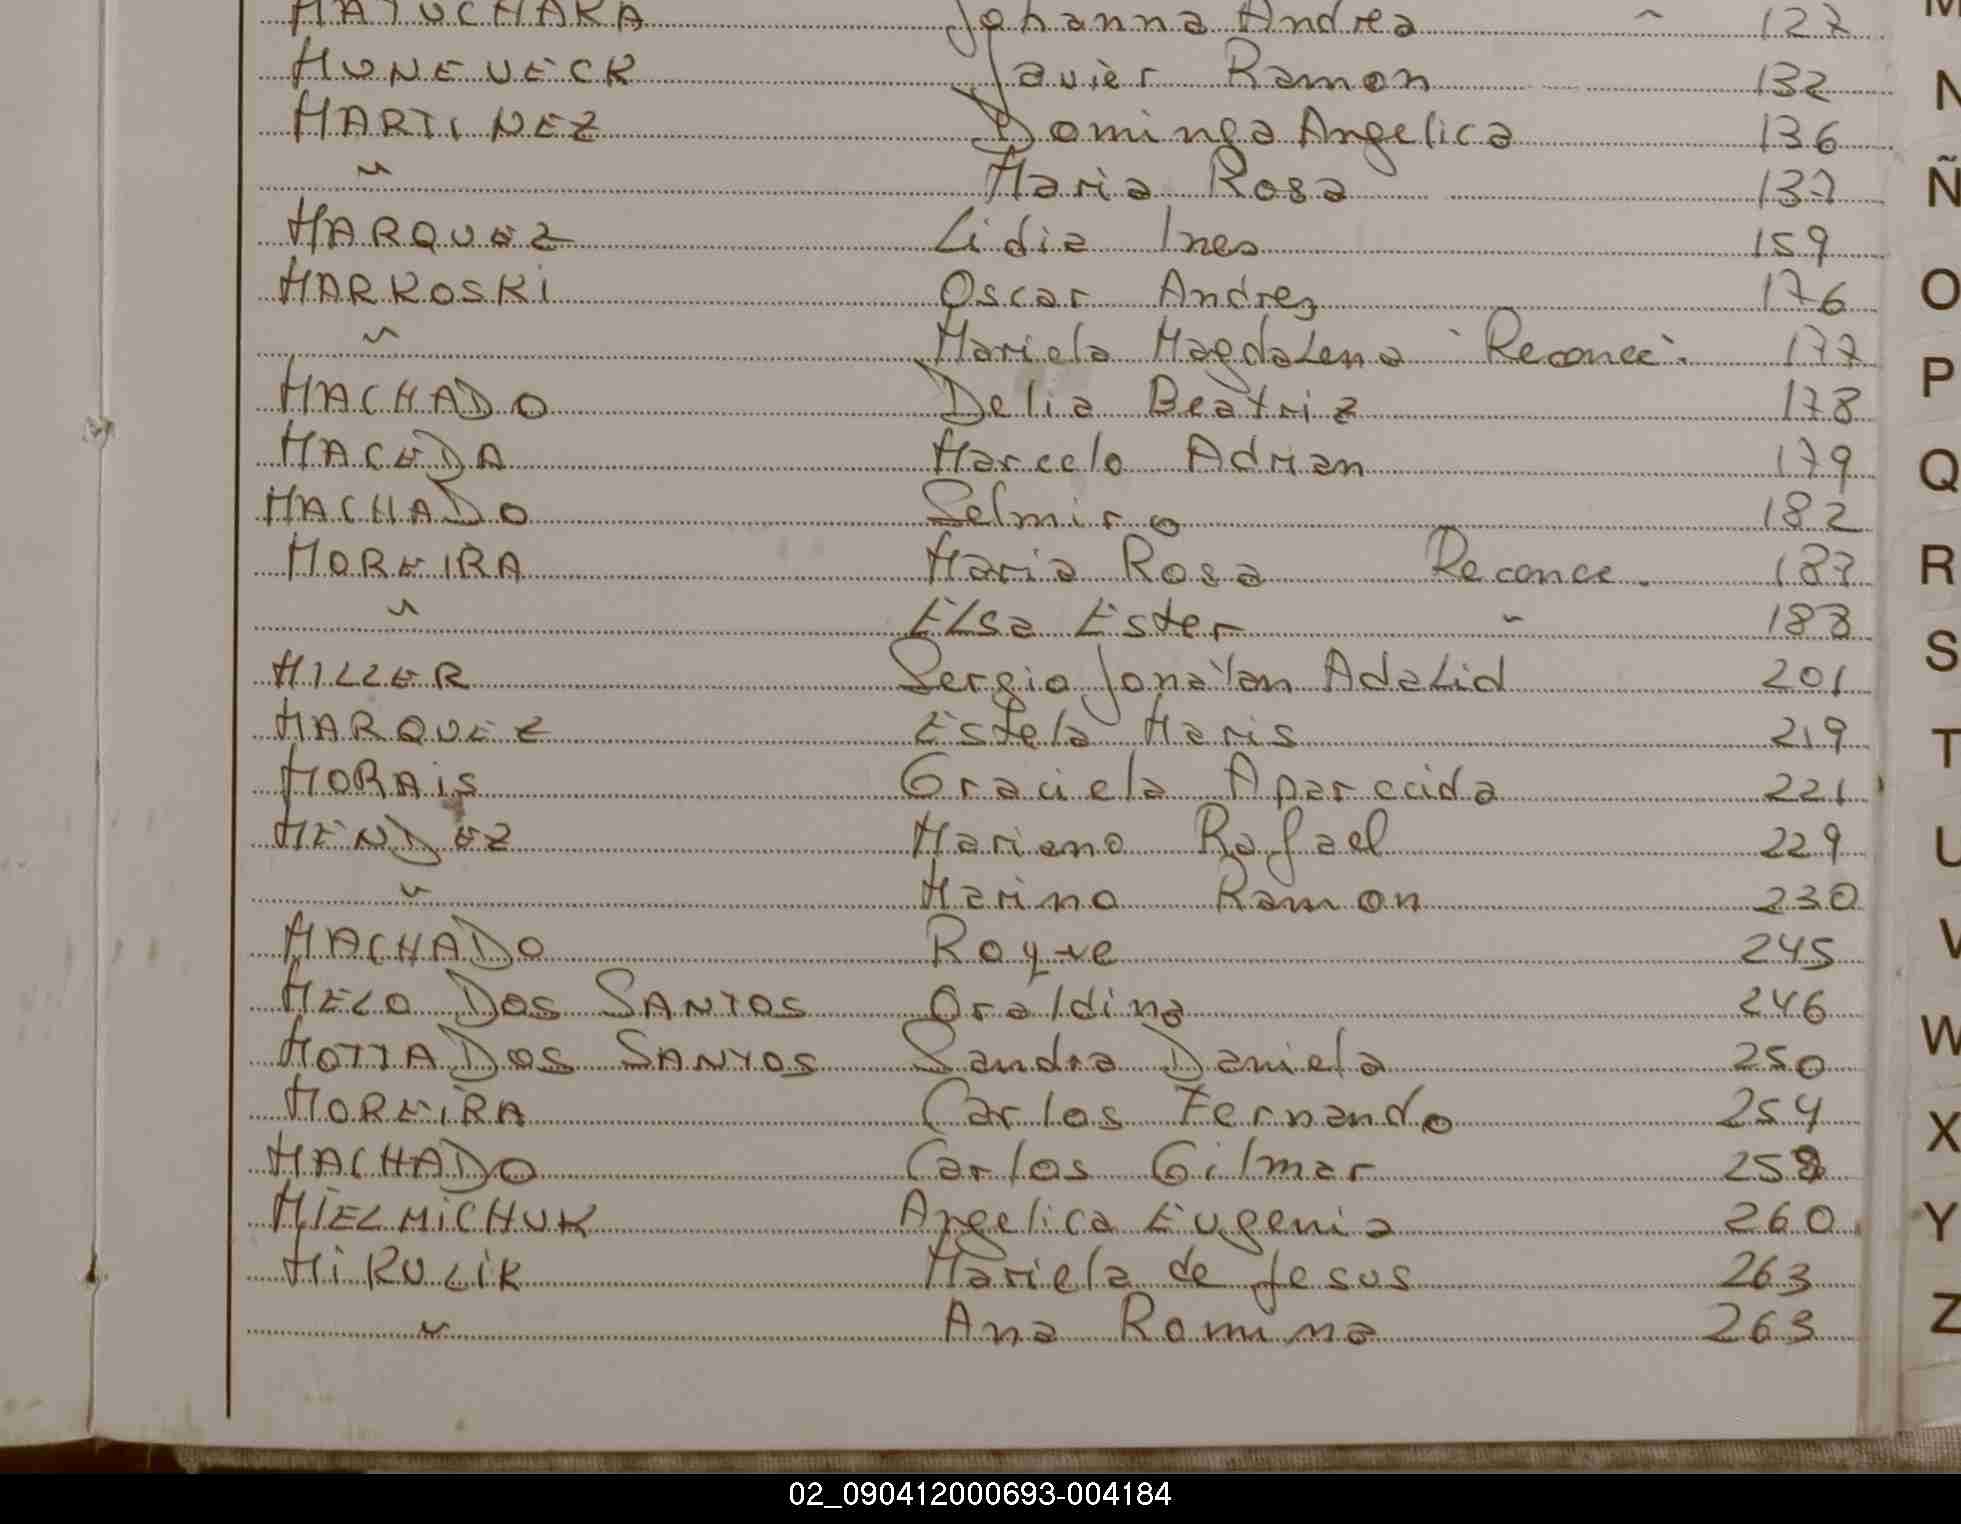 MATUCHAKA Johanna Andrea " 127
MUNEVECK Javier Ramon 132
MARTINEZ Dominga Angelica 136
" Maria Rosa 137
MARQUEZ Lidia Ines 159
MARKOSKI Oscar Andrez 176
" Mariela Magdalena "Reconoc". 177
MACHADO Delia Beatriz 178
MACEDA Marcelo Adrian 179
MACHADO Selmiro 182
MOREIRA Maria Rosa Reconoc. 187
" Elsa Ester " 188
MILLER Sergio Jonatan Adalid 201
MARQUEZ Estela Maris 219
MORAIS Graciela Aparecida 221
MENDEZ Mariano Rafael 229
" Marino Ramon 230
MACHADO Roque 245
MELO DOS SANTOS Oraldina 246
MOTTA DOS SANTOS Sandra Daniela 250
MOREIRA Carlos Fernando 254
MACHADO Carlos Gilmar 258
MIELMICHUK Angelica Eugenia 260
MIRULIK Mariela de Jesus 263
" Ana Romina 263
M
N
Ñ
O
P
Q
R
S
T
U
V
W
X
Y
Z
02_090412000693-004184